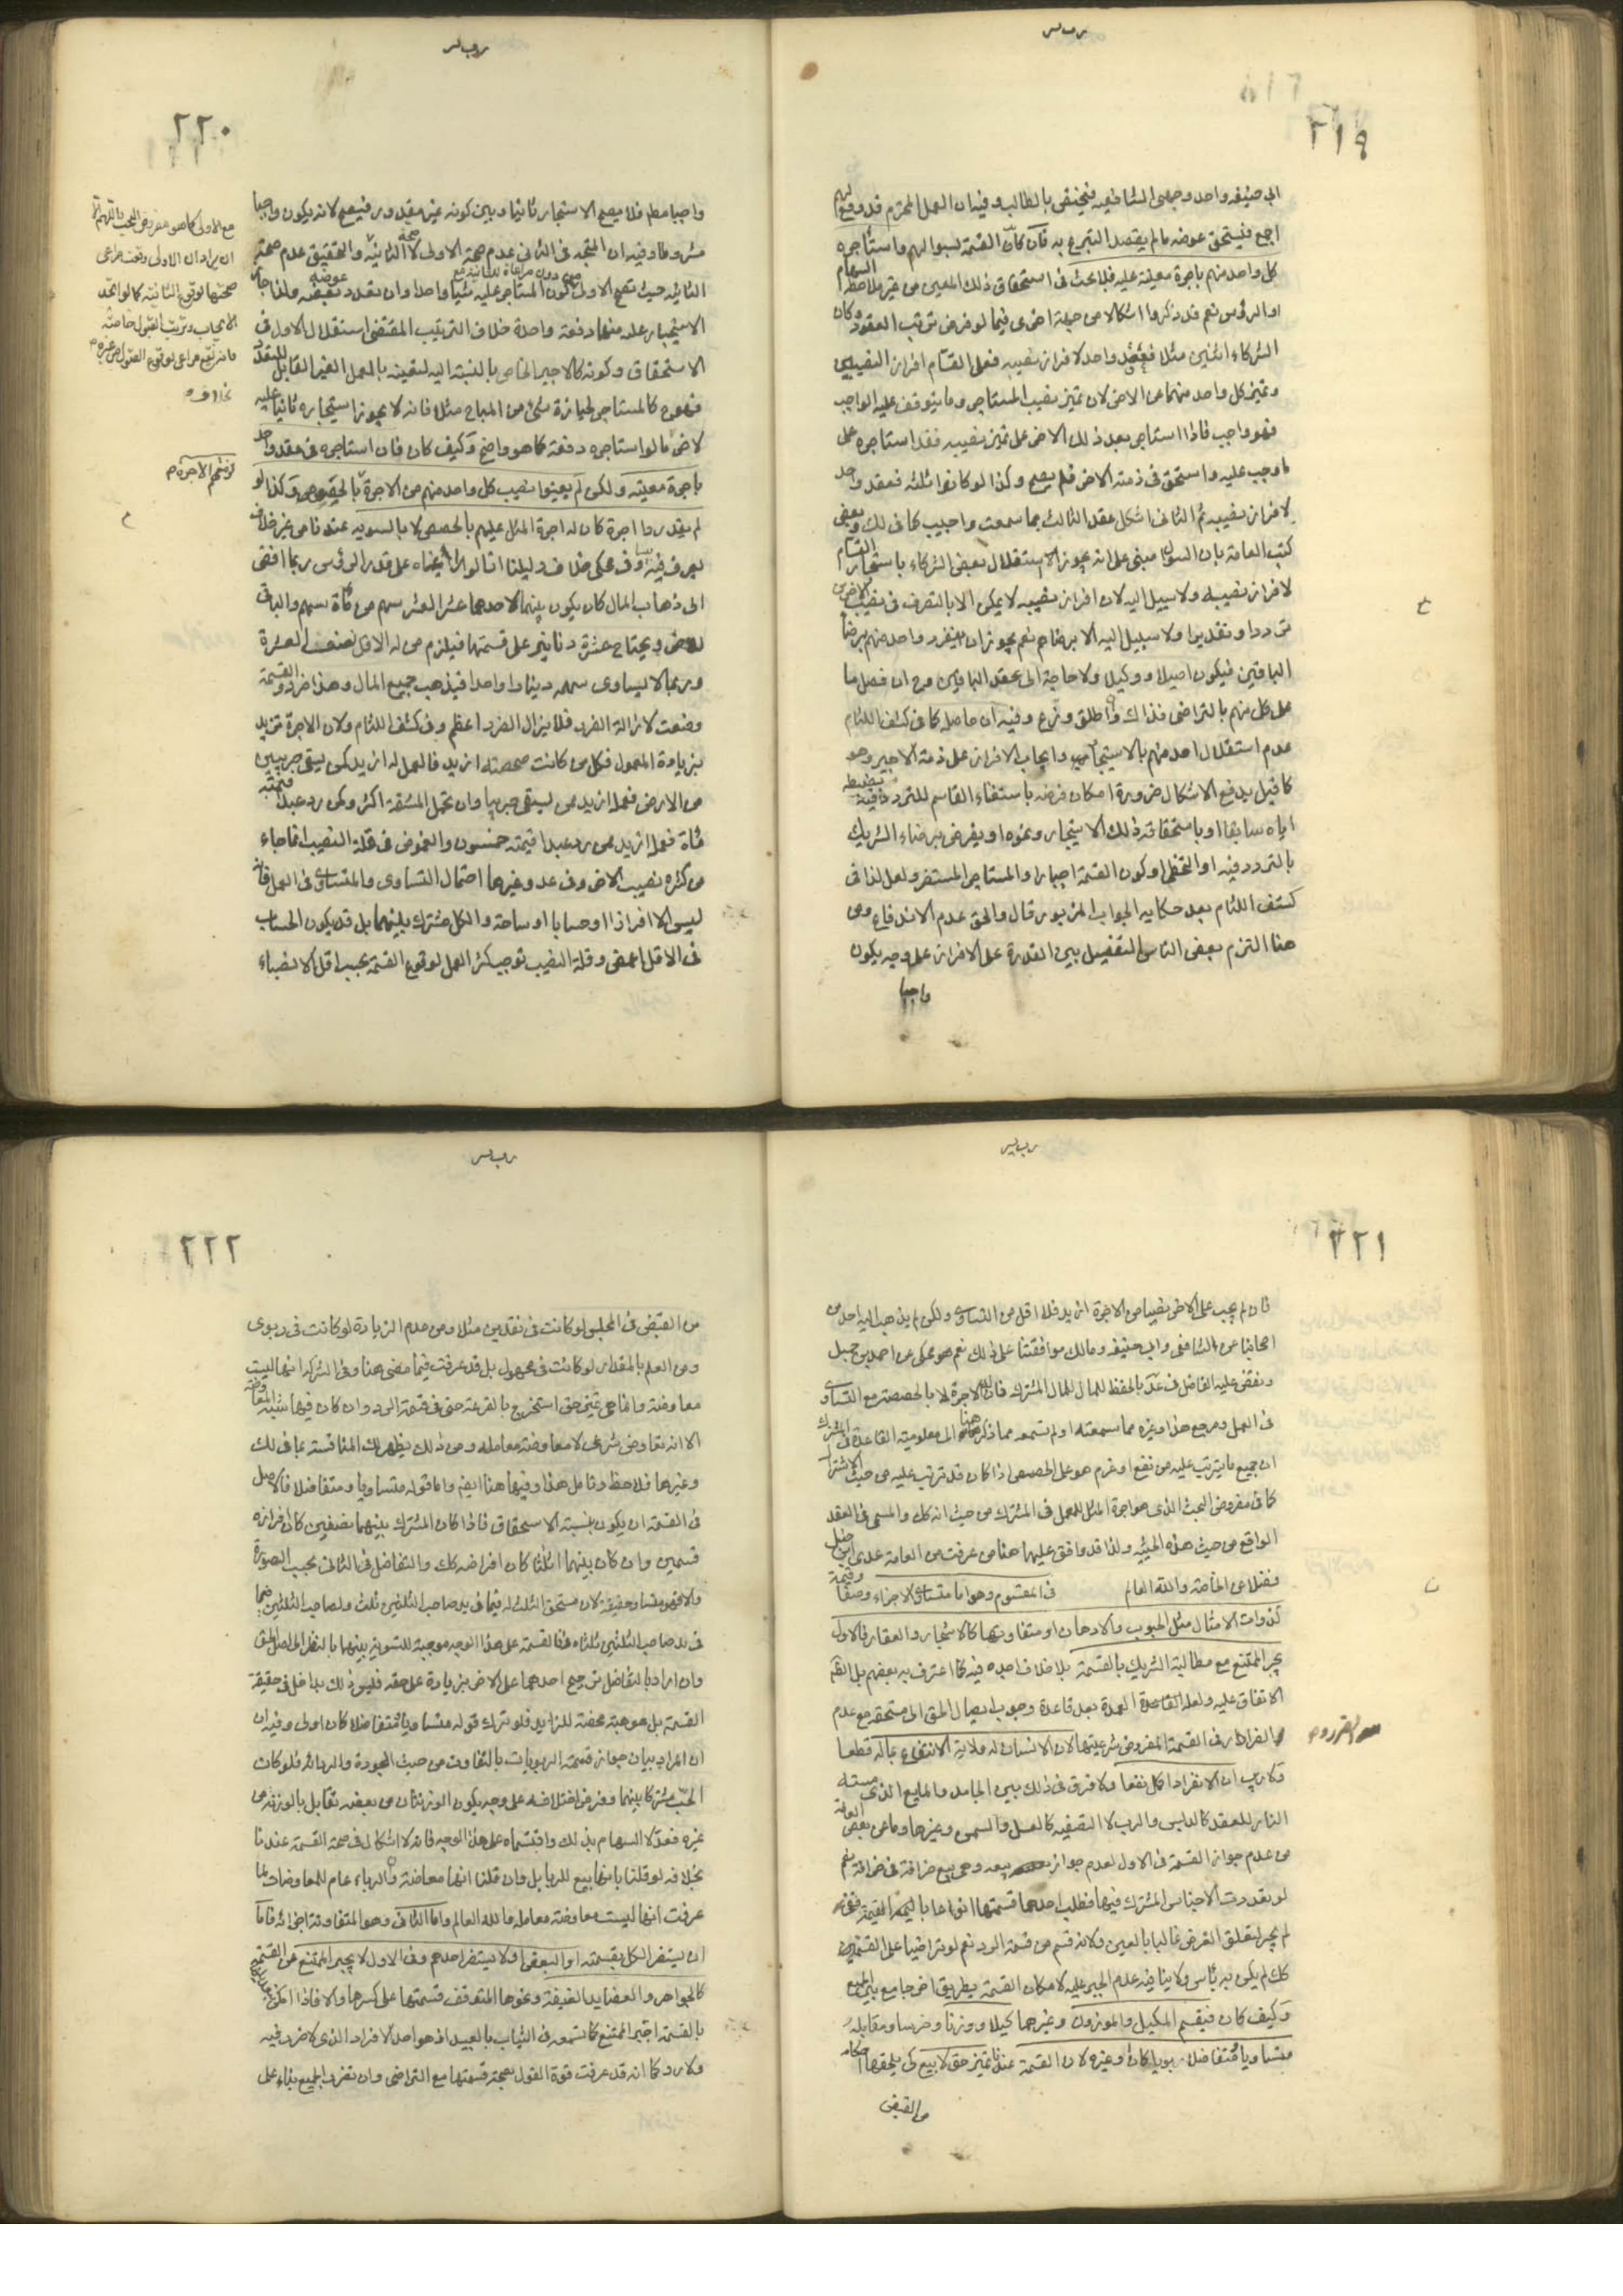 ٢١٩
ابي حنيفة واحد وجهي الشافعية فيختص بالطالب وفيه ان العمل المحترم قد وقع لهم
اجمع فيستحق عوضه ما لم يقصد التبرع به فان كان القسمة لسؤالهم واستأجره
كل واحد منهم باجرة معينة عليه فلا بحث في استحقاق ذلك المعين من غير ملاحظة السهام
او الرؤس نعم قد ذكروا اشكالا من جهة اخرى فيما لو فرض ترتب العقود وكان
الشركاء اثنين مثلا فعقد واحد لافراز نصيبه فعلى القسام افراز النصيبين
وتميز كل واحد منهما عن الاخر لان تميز نصيب المستاجر وما يتوقف عليه الواجب
فهو واجب فاذا استاجر بعد ذلك الاخر على تميز نصيبه فقد استاجره على
ما وجب عليه واستحق في ذمته الاخر فلم يصح وكذا لو كانوا ثلثة فعقد واحد
لافراز نصيبه ثم الثاني اشكل عقد الثالث بما سمعت واجيب كما في لك وبعض
كتب العامة بان السؤال مبني على انه يجوز الاستقلال لبعض الشركاء باستيجار القسام
لافراز نصيبه ولا سبيل اليه لان افراز نصيبه لا يمكن الا بالتصرف في نصيب الاخرين
ترددا وتقديرا ولا سبيل اليه الا برضاهم نعم يجوز ان ينفرد واحد منهم برضا
الباقين فيكون اصيلا ووكيلا ولا حاجة الى عقد الباقين وح ان فصل ما
على كل منهم بالتراضي فذاك وان اطلق وزع وفيه ان حاصله كما في كشف اللثام
عدم استقلال احد منهم بالاستيجار وايجاب الافراز على ذمة الاجير وهو
كما قيل يدفع الاشكال ضرورة امكان فرضه باستيفاء القاسم للتردد وتخطيطه فيه
اياه سابقا او باستحقاقه ذلك الاستيجار ونحوه او يفرض برضاء الشريك
بالتردد فيه او التخطي او كون القسمة اجبارا والمستاجر المستقر ولعل لذا في
كشف اللثام بعد حكاية الجواب المزبور قال والحق عدم الاندفاع ومن
هنا التزم بعض الناس التفصيل بين القدرة على الافراز على وجه يكون
واجبا
٢٢٠
واجبا مطم فلا يصح الاستيجار ثانيا وبين كونه غير مقدور فيصح لانه يكون واجبا
مشروطا وفيه ان المتجه في الثاني عدم صحة الاولى لا صحة الثانية والتحقيق عدم صحة
الثانية حيث تصح الاولى لكون المستاجر عليه شيئا واحدا وان تعدد عوضه وانما جاز
الاستيجار عليه منهما دفعة واحدة خلاف الترتيب المقتضي استقلال الاول في
الاستحقاق وكونه كالاجير الخاص بالنسبة اليه لتعينه بالعمل الغير القابل للتعدد
فهو ح كالمستاجر لحيازة شئ من المباح مثلا فانه لا يجوز استيجاره ثانيا عليه
لاخر ما لو استاجره دفعة كما هو واضح وكيف كان فان استاجره في عقد واحد
باجرة معينة ولكن لم يعينوا نصيب كل واحد منهم من الاجرة بالحصص وكذا لو
لم يقدروا اجرة كان له اجرة المثل عليهم بالحصص لا بالسوية عندنا من غير خلاف
يعرف فيه وف حكي خلاف دليلنا انا لو راعيناه على قدر الرؤس ربما افضى
الى ذهاب المال كان يكون بينهما لاحدهما عشر العشر سهم من مأة سهم والباقي
للاخر ويحتاج عشرة دنانير على قسمتها فيلزم من له الاقل نصف العشرة
وربما لا يساوي سهمه دينارا واحدا فيذهب جميع المال وهذا ضرر والقسمة
وضعت لازالة الضرر فلا يزال الضرر باعظم وفي كشف اللثام ولان الاجرة تزيد
بزيادة المعمول فكل من كانت حصته ازيد فالعمل له ازيد كمن يسقي جريبين
من الارض فعمله ازيد ممن يسقي جريبا وان تحمل المشقة اكثر وكمن رد عبدا قيمته
مأة فعمله ازيد ممن رد عبدا قيمته خمسون والغموض في قلة النصيب انما جاء
من كثرة نصيب الاخر وفي عد وغيرها احتمال التساوي والمتساوي في العمل فانه
ليس الا افرازا او حسابا او مساحة والكل مشترك بينهما بل قد يكون الحساب
في الاقل اغمض وقلة النصيب توجب كثرة العمل لوقوع القسمة بحسب اقل الانصباء
مع الاولى كما هو مفروض البحث
الايجاب وترتب القبول خاصة
بخلافه
لزمتهم الاجرة م
٢٢١
فان لم يجب على الاخر نصيبا من الاجرة ازيد فلا اقل من التساوي ولكن لم يذهب اليه احد من
اصحابنا عن الشافعي وابي حنيفة ومالك موافقتنا على ذلك نعم هو محكي عن احمد بن حنبل
ونقض عليه الفاضل في عد بالحفظ للمال المشترك فان له الاجرة بالحصص مع التساوي
في العمل ومرجع هذا وغيره مما سمعته او لم تسمعه مما ذكر هنا الى معلومية القاعدة في المشترك
ان جميع ما يترتب عليه من نفع او غرم هو على الحصص اذا كان قد ترتب عليه من حيث الاشتراك
كما في مفروض البحث الذي هو اجرة المثل للعمل في المشترك من حيث انه كك والمسمى في العقد
الواقع من حيث هذه الحيثية ولذا قد وافق عليها هنا من عرفت من العامة عدى ابن حنبل
فضلا عن الخاصة والله العالم في المقسوم وهو اما متساوي الاجزاء وصفا وقيمة
كذوات الامثال مثل الحبوب والادهان او متفاوتها كالاشجار والعقار فالاول
يجبر الممتنع مع مطالبة الشريك بالقسمة بلا خلاف اجده فيه كما اعترف به بعضهم بل الظم
الاتفاق عليه ولعله القاعدة العمدة بعد قاعدة وجوب ايصال الحق الى مستحقه مع عدم
الضرر في القسمة المفروض شرعيتها لان الانسان له ولاية الانتفاع بماله قطعا
ولا ريب ان الانفراد اكمل نفعا ولا فرق في ذلك بين الجامد والمايع الذي مسته
النار للعقد كالدبس والرب لا التصفية كالعسل والسمن وغيرها وما عن بعض العامة
من عدم جواز القسمة في الاول لعدم جواز بيعه وهي بيع خرافة في خرافة نعم
لو تعددت الاجناس المشترك فيها فطلب احدهما قسمتها انواعا بالقيمة
لم يجبر لتعلق الغرض غالبا بالعين ولانه قسم من قسمة الرد نعم لو تراضيا على القسمة
كك لم يكن به بأس ولا ينافيه عدم الجبر عليه لامكان القسمة بطريق اخر جامع بين الجميع
وكيف كان فيقسم المكيل والموزون وغيرهما كيلا ووزنا وخرصا ومقابلة
متساويا ومتفاضلا ربويا كان او غيره لان القسمة عندنا تميز حق لا بيع كي يلحقها احكامه
من القبض
٢٢٢
من القبض في المجلس لو كانت في نقدين مثلا ومن عدم الزيادة لو كانت في ربوي
ومن العلم بالمقدار لو كانت في مجهول بل قد عرفت فيما مضى هنا وفي الشركة انها ليست
معاوضة وانما هي تميز حق استخرج بالقرعة حتى في قسمة الرد وان كان فيها شبه المعاوضة
الا انه تعاوض شرعي لا معاوضة معاملة ومن ذلك يظهر لك المناقشة بما في لك
وغيرها فلاحظ وتامل هذا وفيها هنا ايضم واما قوله متساويا ومتفاضلا فالاصل
في القسمة ان يكون بنسبة الاستحقاق فاذا كان المشترك بينهما نصفين كان افرازه
قسمين وان كان بينهما اثلاثا كان افرازه كك والتفاضل في الثاني بحسب الصورة
والا فهو متساو حقيقة لان مستحق الثلث له فيما في يد صاحب الثلثين ثلث ولصاحب الثلثين فيما
في يد صاحب الثلث ثلثاه فالقسمة على هذا الوجه موجبة للتسوية بينهما بالنظر الى اصل الحق
وان اراد بالتفاضل ترجيح احدهما على الاخر بزيادة على حقه فليس ذلك بداخل في حقيقة
القسمة بل هو هبة محضة للزايد فلو ترك قوله متساويا ومتفاضلا كان اولى وفيه ان
ان المراد بيان جواز قسمة الربويات بالتفاوت من حيث الجودة والردائة فلو كان
الحب مشتركا بينهما وفرض اختلافه على وجه يكون الوزنتان من بعضه تقابل بالوزنة من
غيره فعدلا السهام بذلك واقتسماه على هذا الوجه فانه لا اشكال في صحة القسمة عندنا
بخلافه لو قلنا بانها بيع للربا بل وان قلنا انها معاوضة والرباء عام للمعاوضات لما
عرفت انها ليست معاوضة معاملة والله العالم واما الثاني وهو المتفاوتة اجزائه فاما
ان يستضر الكل بقسمته او البعض او لا يستضر احدهم وفي الاول لا يجبر الممتنع عن القسمة
كالجواهر والعضايد الضيقة ونحوها المتوقف قسمتها على كسرها والا فاذا امكن
بالقسمة اجبر الممتنع كما تسمعه في الثياب بالعبيد اذ هو احد الافراد الذي لا ضرر فيه
ولا رد كما انه قد عرفت قوة القول بصحة قسمتها مع التراضي وان تضرر الجميع بناء على